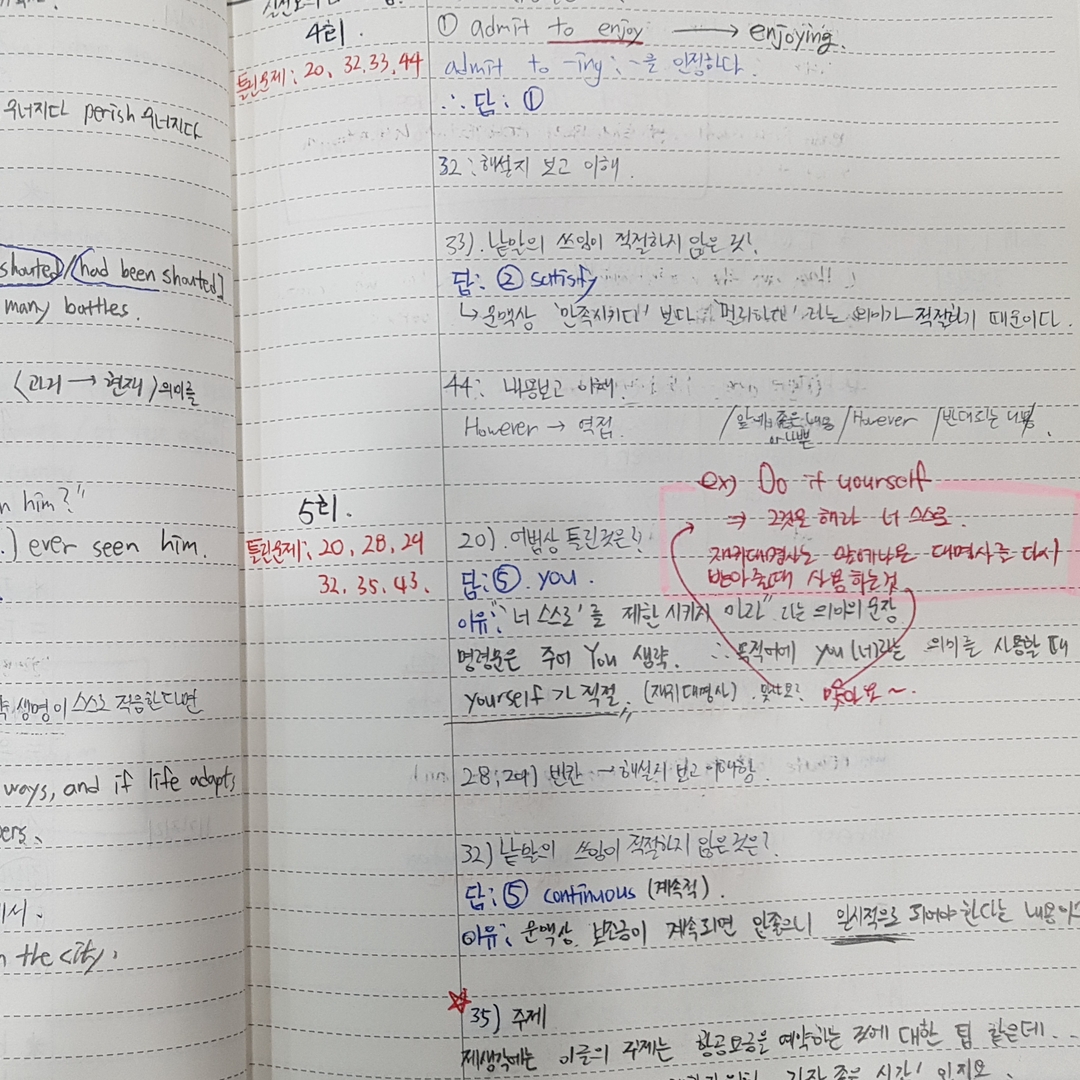 무너지다 perish 무너지다
shouted/had been shouted]
many battles.
<과거 → 현재>의미를
n him?"
.) ever seen him.
생명이 스스로 적응한다면
ways, and if life adapts
n the city.
4회.
틀린문제: 20, 32, 33, 44
① admit to enjoy → enjoying.
admit to -ing: ~를 인정하다.
∴ 답: ①
32: 해설지 보고 이해.
33). 낱말의 쓰임이 적절하지 않은 것!
답: ② satisfy
↳ 문맥상 '만족시키다' 보다 '멀리하다'라는 의미가 적절하기 때문이다.
44: 내용보고 이해.
However → 역접. /앞에 좋은 내용 or 나쁜 /However /반대되는 내용.
5회.
틀린문제: 20, 28, 29
32, 35, 43.
ex) Do it yourself
⇒ 그것을 해라 너 스스로.
재귀대명사는 앞에나온 대명사를 다시
받아줄때 사용하는것
20). 어법상 틀린것은?
답: ⑤. you.
이유: "너 스스로'를 제한시키지 마라" 라는 의미의 문장
명령문은 주어 You 생략. ∴ 목적어에 you(너)라는 의미를 사용할 때
yourself가 적절. (재귀대명사). 맞나요? 맞아요~.
28, 29) 빈칸 → 해설지 보고 이해함.
32) 낱말의 쓰임이 적절하지 않은것은?
답: ⑤ continuous (계속적).
이유: 문맥상 보조금이 계속되면 안좋으니 일시적으로 되어야 한다는 내용이
35) 주제
제생각에는 이글의 주제는 항공요금을 예약하는 것에 대한 팁 같은데..
가장 좋은 시간! 인지요.